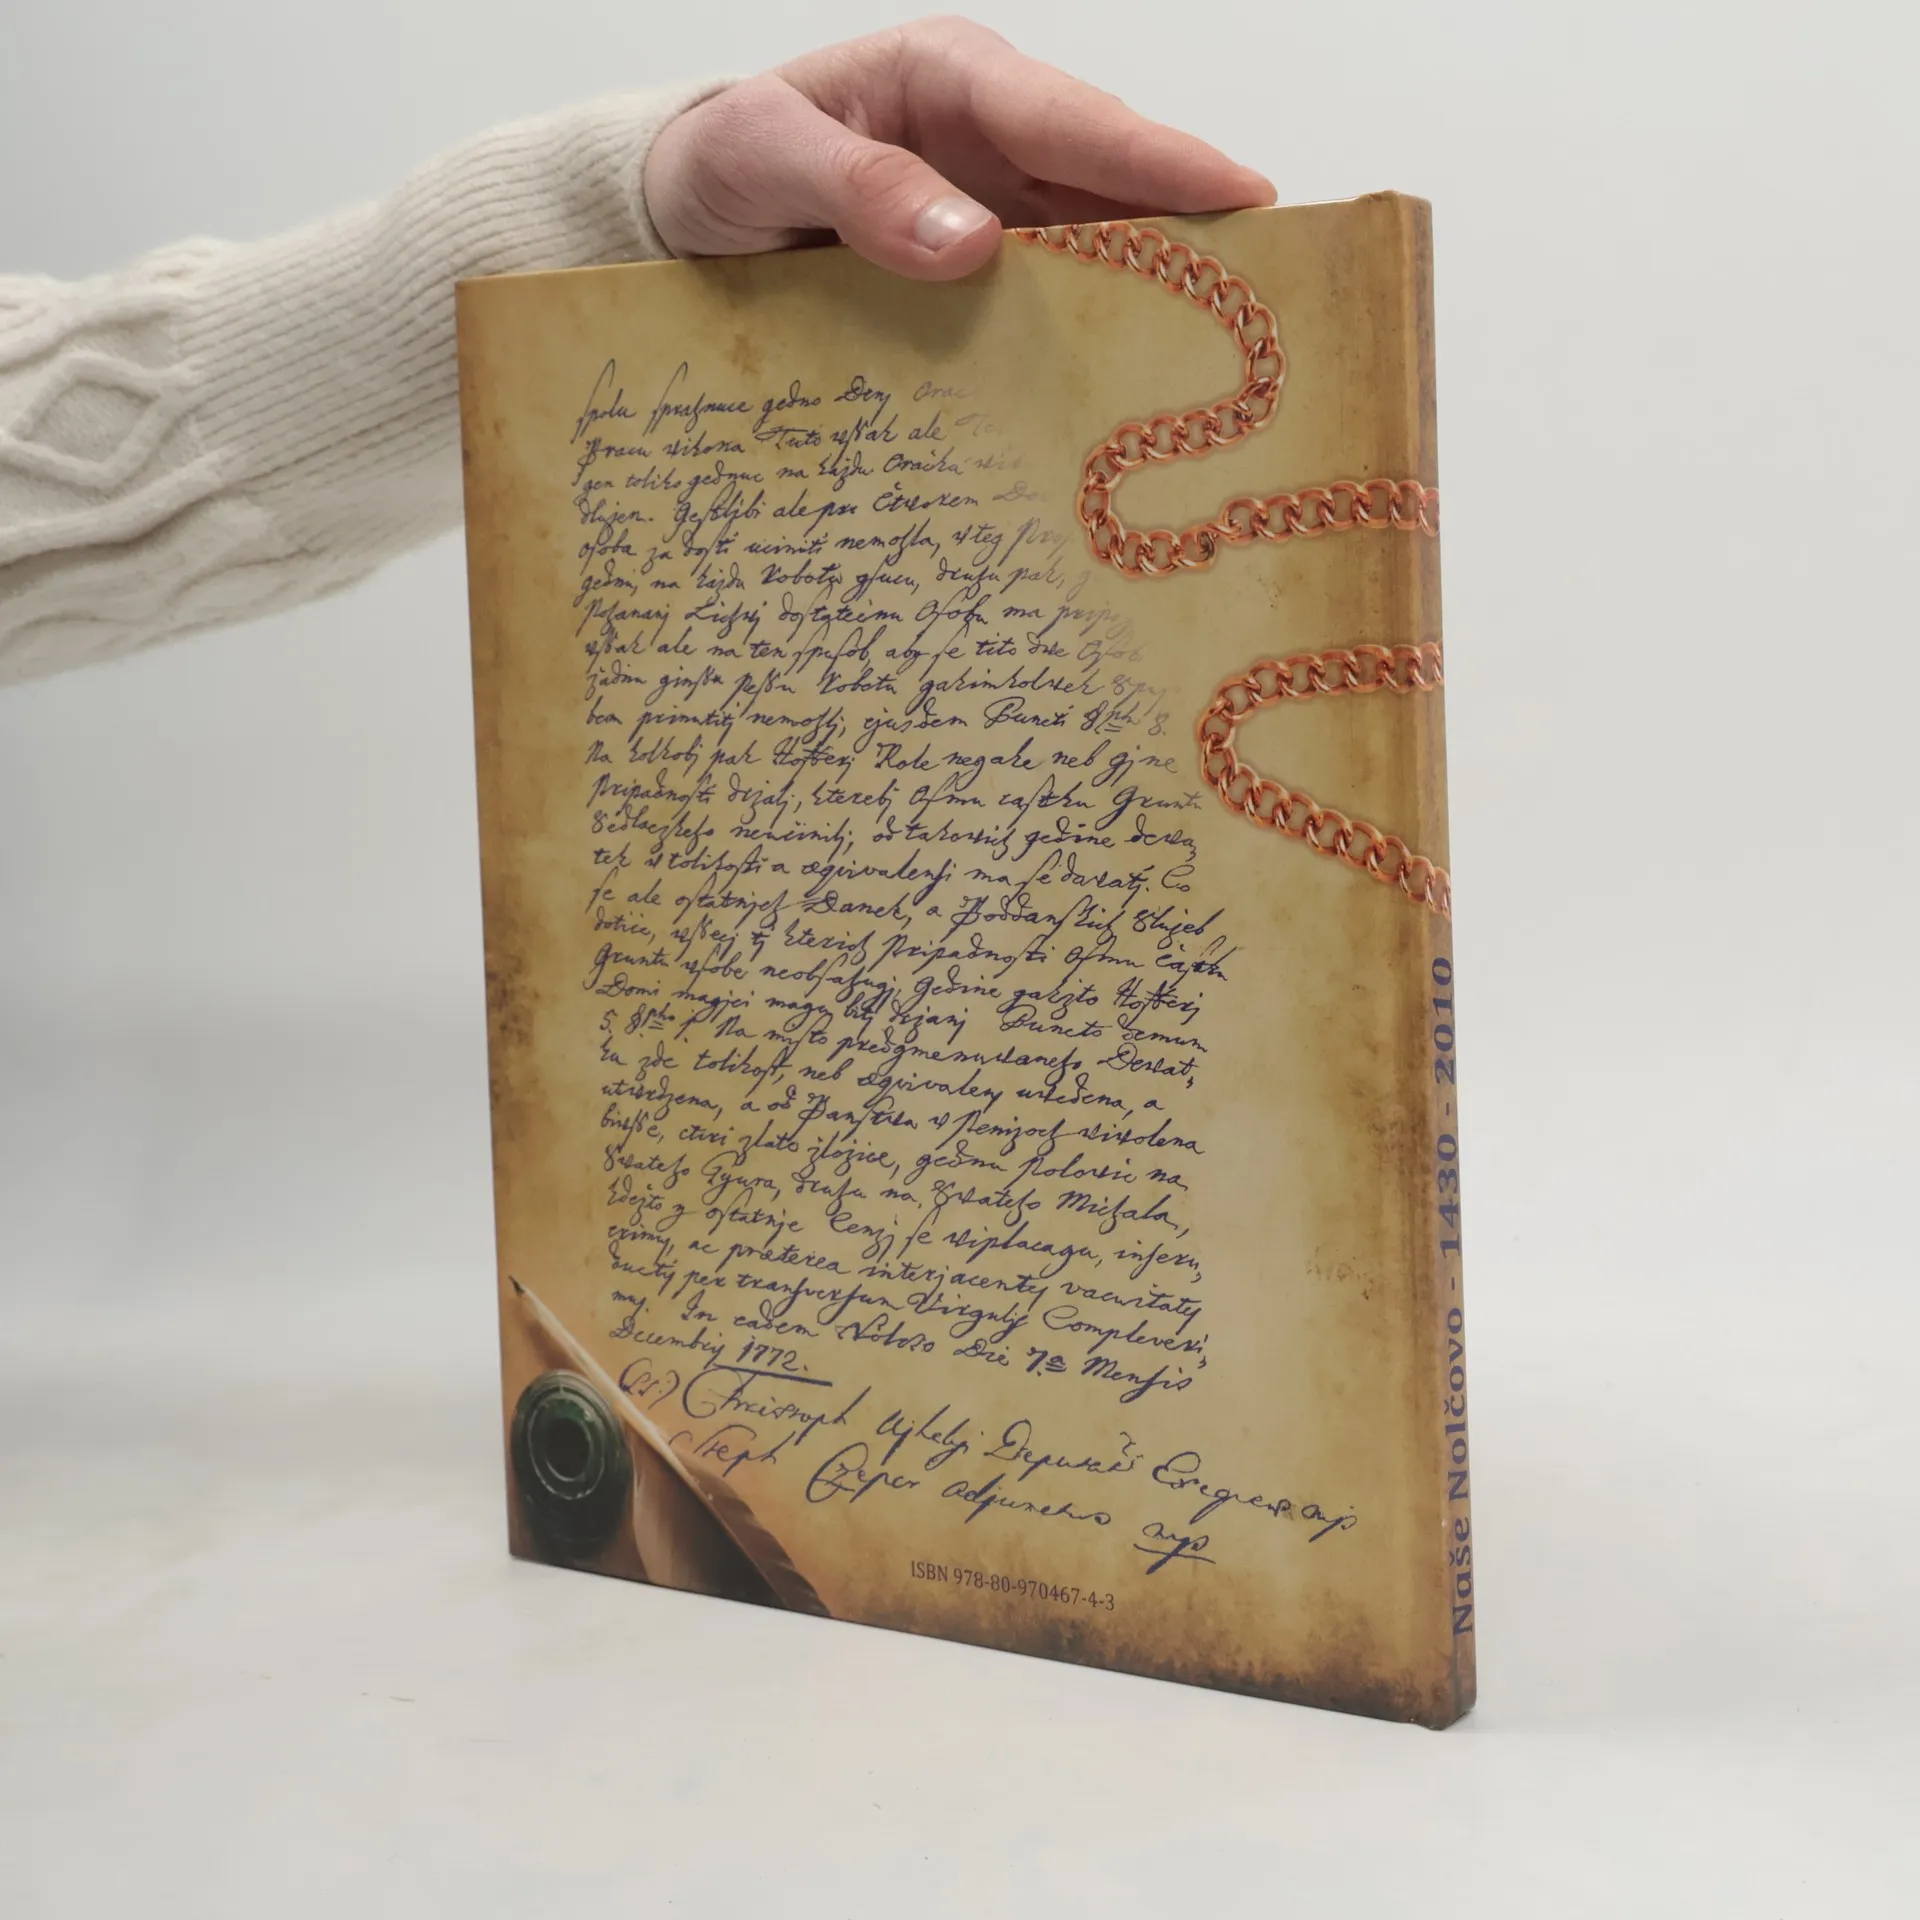 spolu spražnuce gedno Deny Orac
Pracu wikona Tuto wssak ale
gen toliko gednuc na každu Oračku
dlužen. Gestližbi ale pri Čtworem
osoba za dosti učiniti nemohla, w teg
gednu, na každu Robotu gsucu, druhu pak,
Pohananj Lichwj dostatečnu Osobu ma
wssak ale na ten spusob, aby se tito dwe Osob
žadnu ginssu pessu Robotu gakimkolwek
bem prinutitj nemohlj, ejusdem Puncti 8pho 8.
Na kolkobj pak Hofferj Role negake neb gjne
Pripadnosti držalj, kterebj Osmu castku Gruntu
Sedlaczkeho neučinilj, od takowich gedine dewa,
tek w tolikosti a æqvivalensi ma se dawatj. Co
se ale ostatnjch Danek, a Poddanskich Služeb
dotiče, wssecj tj kterich Pripadnosti Osmu častku
Gruntu w sobe neobsahugj, Gedine gakžto Hofferj
Domi magjci magu bitj držanj Puncto demum
5. 8pho j. Na misto predgmenuwaneho Dewat,
ku zde tolikost, neb æqvivalens uwedena, a
utwrdzena, a od Panstwa w Penizoch wiwolena
biwsse, ctiri zlato zložice, gednu Polowic na
Swateho Gyura, druhu na Swateho Michala,
kdežto z ostatnje Cenzj se wiplacagu, inseru,
erimus, ac præterea interjacentes vacuitates
ductis per transversum Virgulis Compleveri,
mus. In eadem Nolcso Die 7a Mensis
Decembris 1772.
(L.S.) Christoph Ujhelyi Deputat
Steph Czeper Adjunctus mp
ISBN 978-80-970467-4-3
Naše Nolčovo - 1430 - 2010